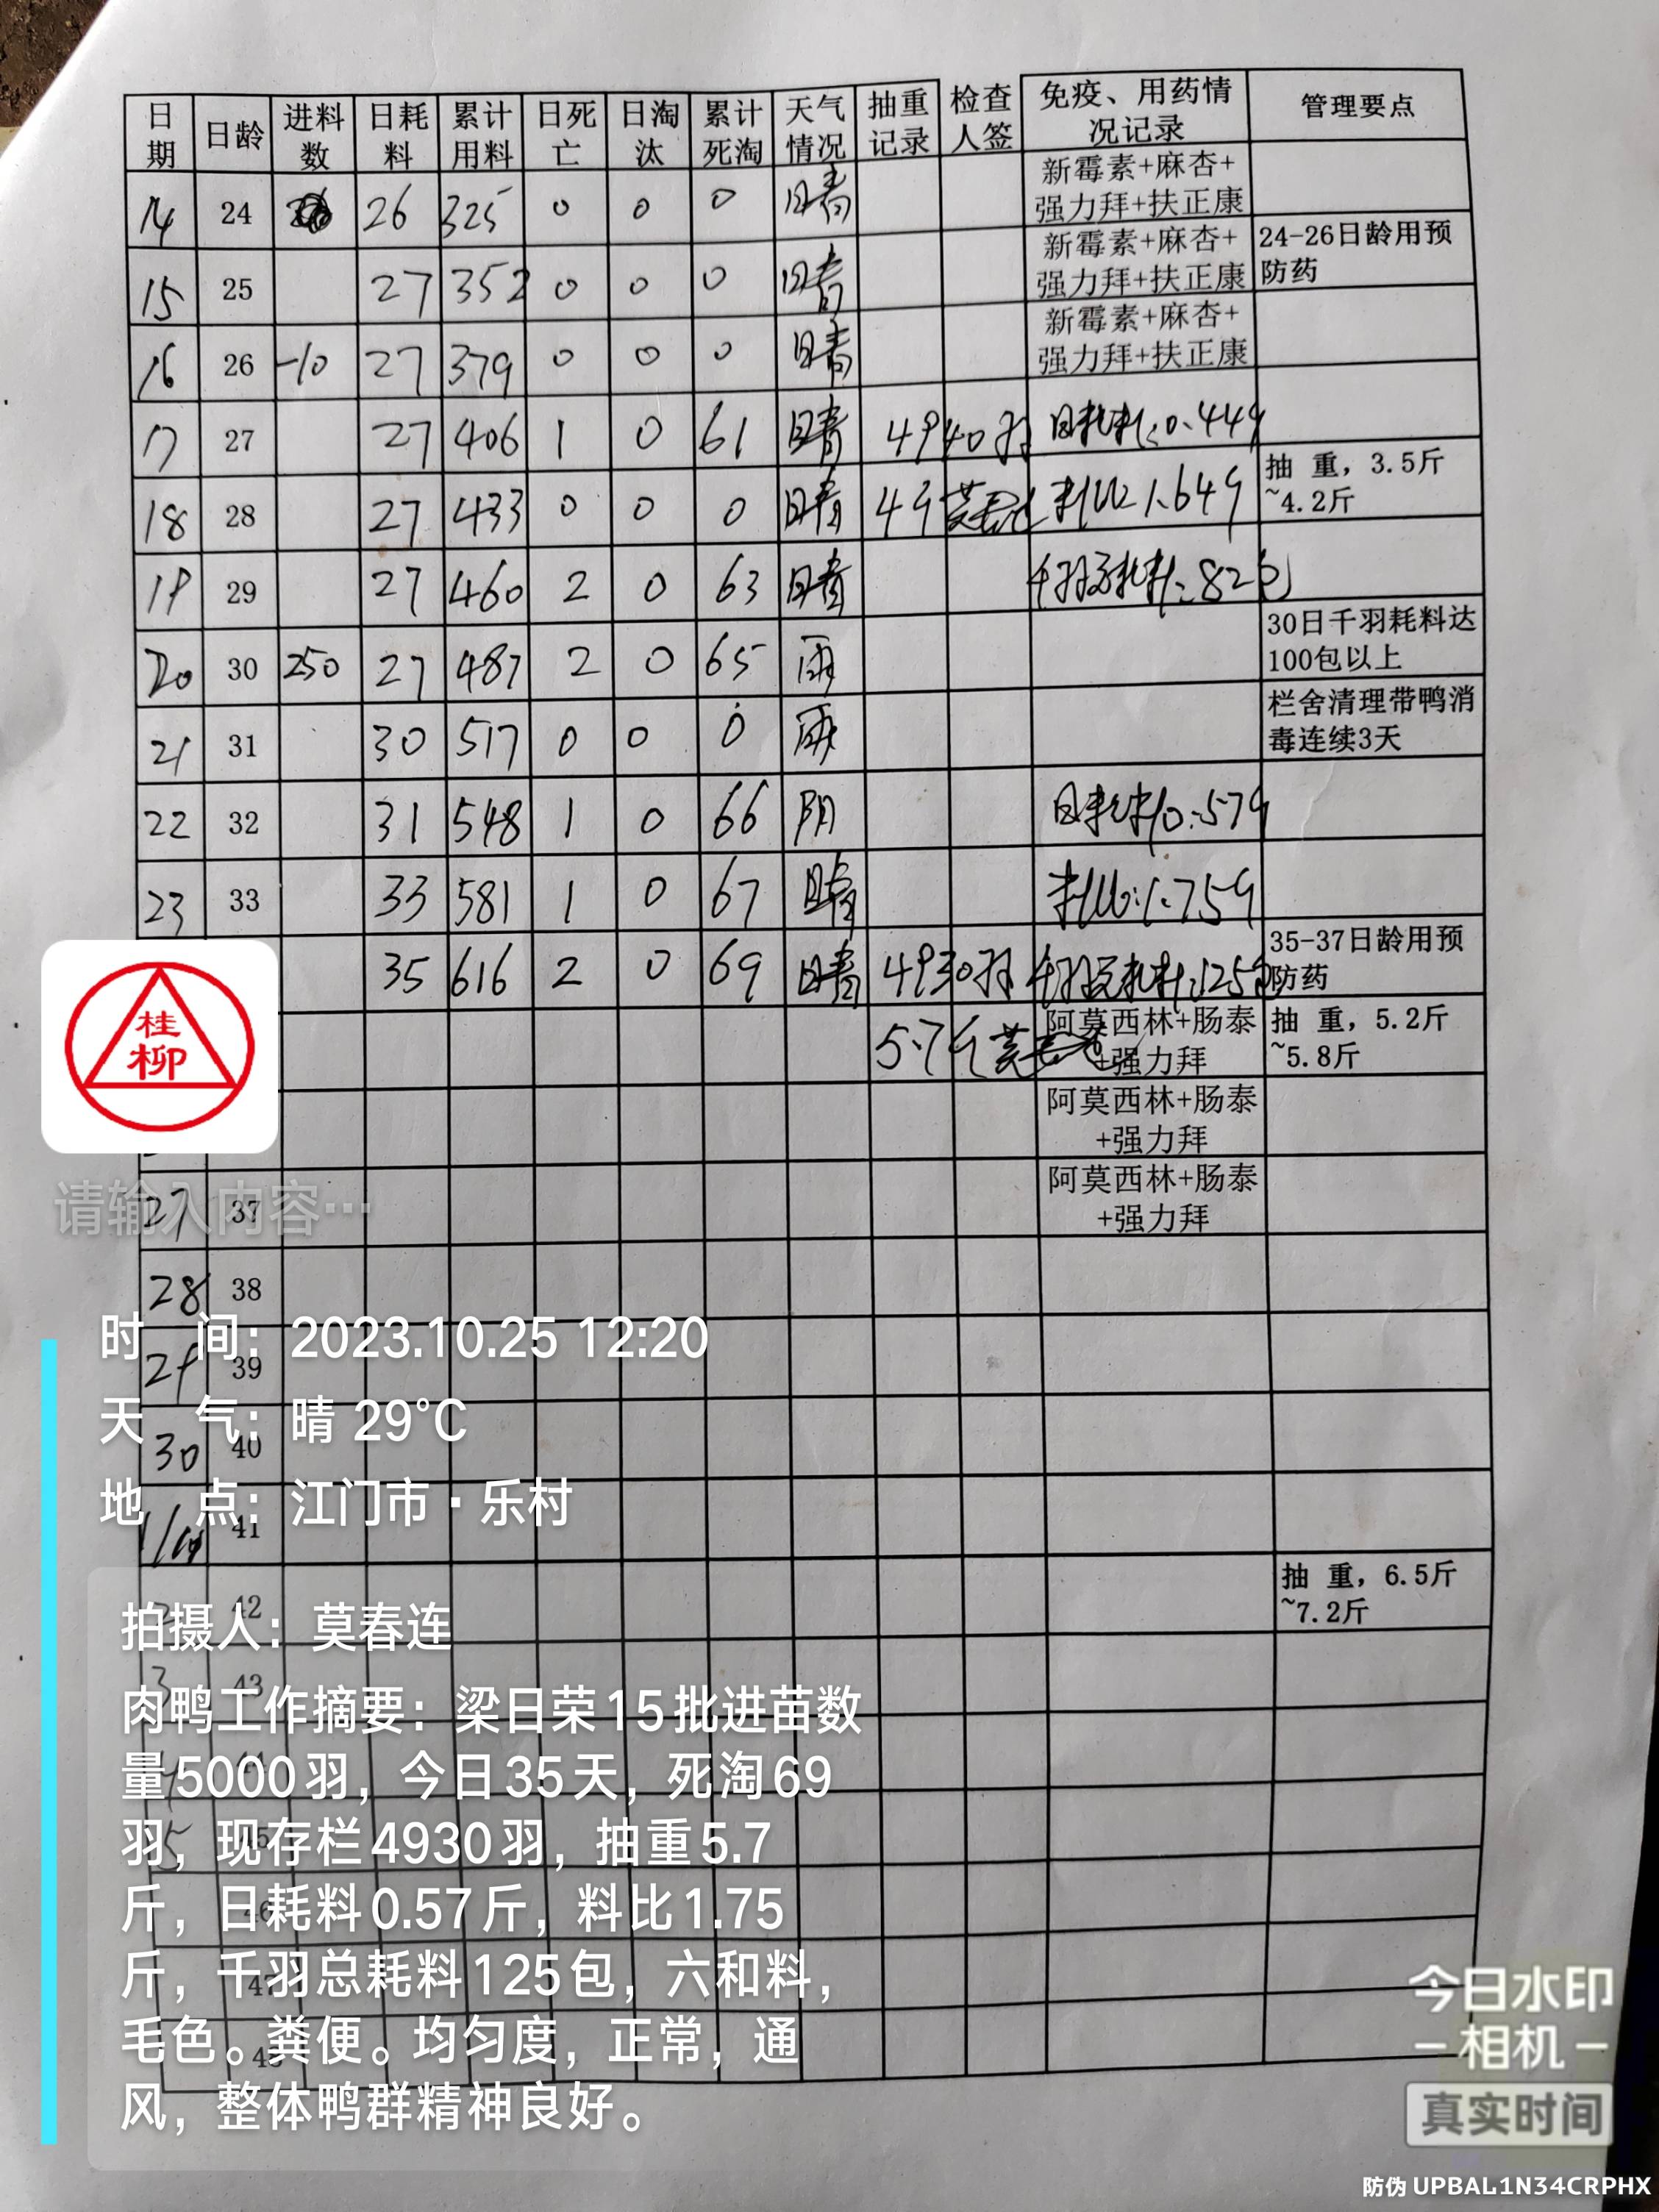 日期 日龄 进料数 日耗料 累计用料 日死亡 日淘汰 累计死淘 天气情况 抽重记录 检查人签 免疫、用药情况记录 管理要点
14 24 26 325 0 0 0 晴 新霉素+麻杏+强力拜+扶正康
15 25 27 352 0 0 0 晴 新霉素+麻杏+强力拜+扶正康 24-26日龄用预防药
16 26 -10 27 379 0 0 0 晴 新霉素+麻杏+强力拜+扶正康
17 27 27 406 1 0 61 晴 4940羽 日耗料:0.44斤
18 28 27 433 0 0 0 晴 4斤 料比1.64斤 抽 重，3.5斤~4.2斤
19 29 27 460 2 0 63 晴 千羽总耗料:82包
20 30 250 27 487 2 0 65 雨 30日千羽耗料达100包以上
21 31 30 517 0 0 0 雨 栏舍清理带鸭消毒连续3天
22 32 31 548 1 0 66 阴 日耗料0.57斤
23 33 33 581 1 0 67 晴 料比:1.75斤
35 616 2 0 69 晴 4930羽 千羽总耗料:125包 35-37日龄用预防药
5.7斤 阿莫西林+肠泰+强力拜 抽 重，5.2斤~5.8斤
阿莫西林+肠泰+强力拜
27 37 阿莫西林+肠泰+强力拜
28 38
29 39
30 40
41
42 抽 重，6.5斤~7.2斤
3 43
4 44
5 45
46
47
桂柳
请输入内容…
时 间：2023.10.25 12:20
天 气：晴 29℃
地 点：江门市·乐村
拍摄人：莫春连
肉鸭工作摘要：梁日荣15批进苗数
量5000羽，今日35天，死淘69
羽，现存栏4930羽，抽重5.7
斤，日耗料0.57斤，料比1.75
斤，千羽总耗料125包，六和料，
毛色。粪便。均匀度，正常，通
风，整体鸭群精神良好。
今日水印
-相机-
真实时间
防伪 UPBAL1N34CRPHX